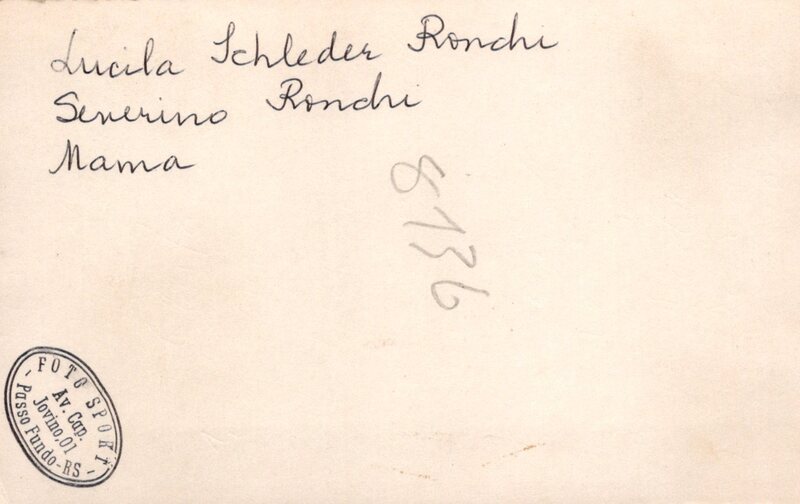 Lucila Schleder Ronchi
Severino Ronchi
Mama
8136
- FOTO SPORT -
Av. Cap.
Jovino, 01
Passo Fundo-RS